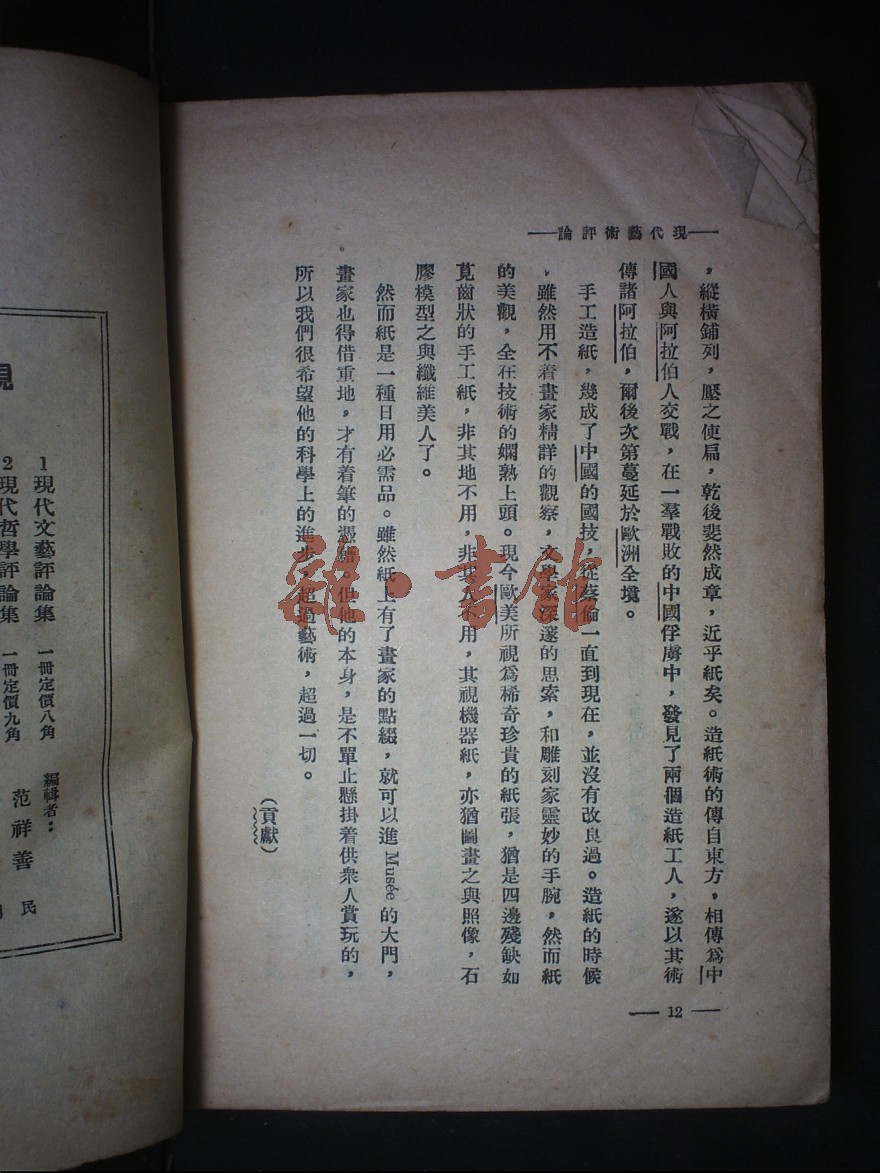 現代藝術評論
，縱橫鋪列，壓之使扁，乾後斐然成章，近乎紙矣。造紙術的傳自東方，相傳爲中
國人與阿拉伯人交戰，在一羣戰敗的中國俘虜中，發見了兩個造紙工人，遂以其術
傳諸阿拉伯，爾後次第蔓延於歐洲全境。
手工造紙，幾成了中國的國技，從蔡倫一直到現在，並沒有改良過。造紙的時候
，雖然用不着畫家精詳的觀察，文學家深邃的思索，和雕刻家靈妙的手腕，然而紙
的美觀，全在技術的嫻熟上頭。現今歐美所視爲稀奇珍貴的紙張，猶是四邊殘缺如
莧齒狀的手工紙，非其地不用，非其人不用，其視機器紙，亦猶圖畫之與照像，石
膠模型之與纖維美人了。
然而紙是一種日用必需品。雖然紙上有了畫家的點綴，就可以進 Musée 的大門，
畫家也得借重地，才有着筆的憑藉。但他的本身，是不單止懸掛着供衆人賞玩的，
所以我們很希望他的科學上的進步，超過藝術，超過一切。
（貢獻）
12
現
1 現代文藝評論集 一冊定價八角
2 現代哲學評論集 一冊定價九角
編輯者：
范祥善
民
雜·書館